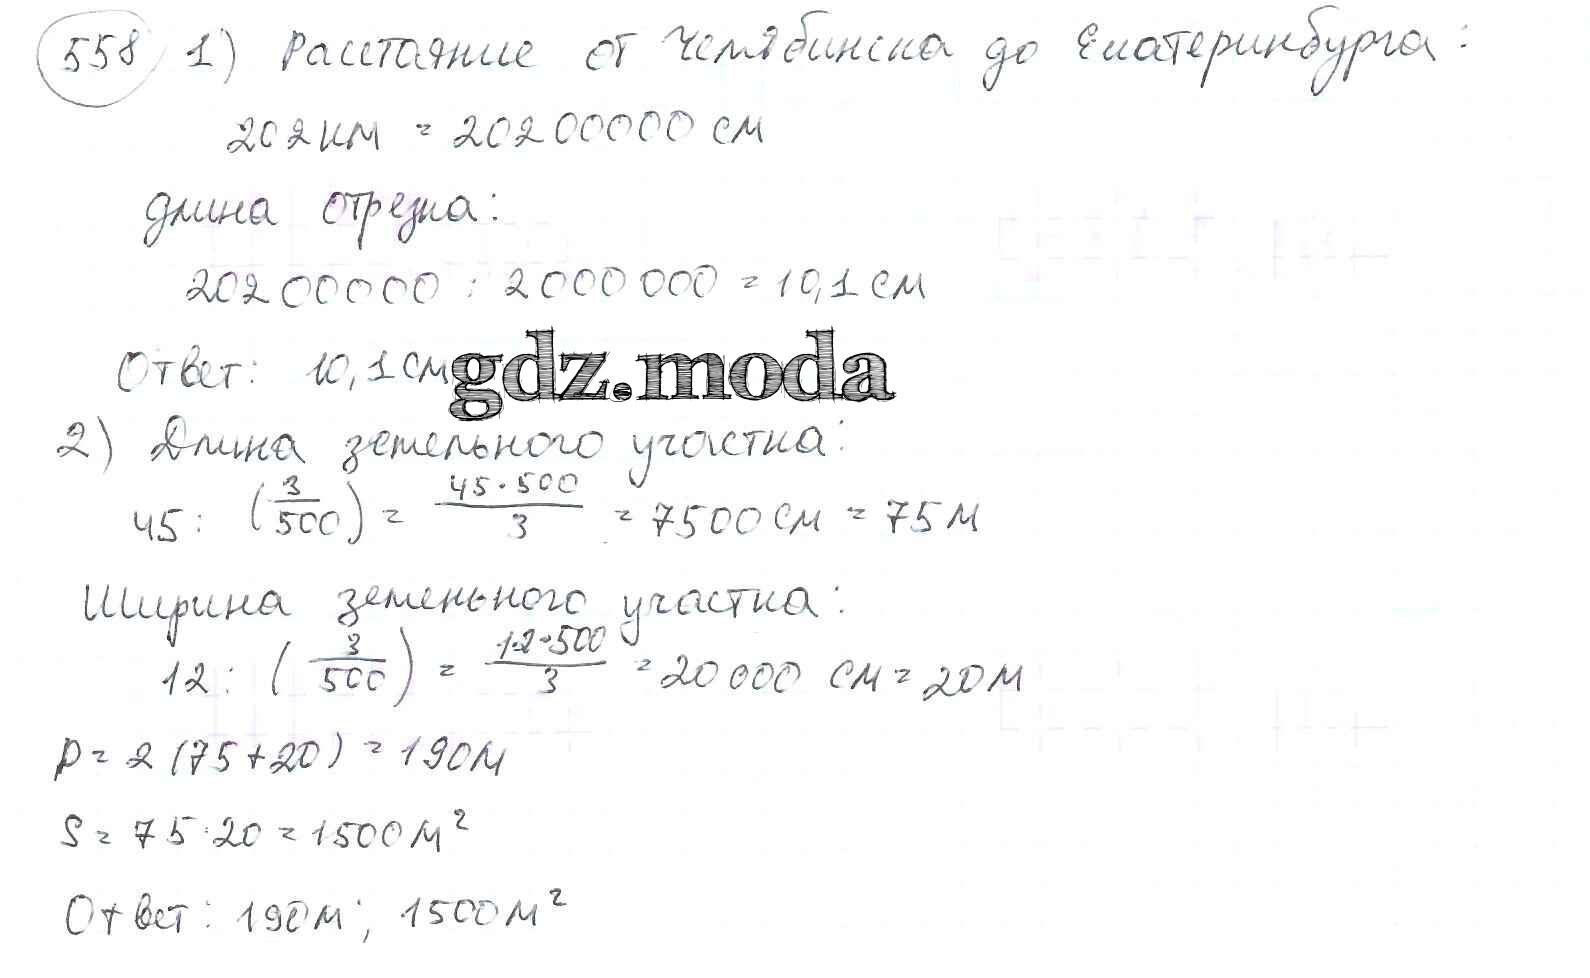 558 1) Расстояние от Челябинска до Екатеринбурга:
202 км = 20200000 см
Длина отрезка:
20200000 : 2000000 = 10,1 см
Ответ: 10,1 см
gdz.moda
2) Длина земельного участка:
45 : (3/500) = 45·500/3 = 7500 см = 75 м
Ширина земельного участка:
12 : (3/500) = 12·500/3 = 20000 см = 20 м
P = 2 (75+20) = 190 м
S = 75·20 = 1500 м²
Ответ: 190 м; 1500 м²